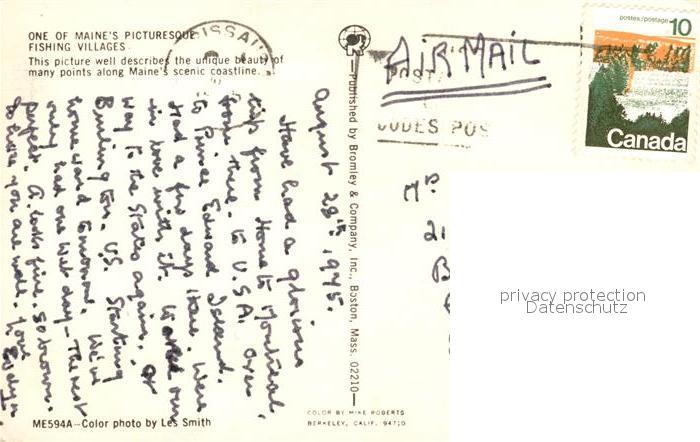 ONE OF MAINE'S PICTURESQUE
FISHING VILLAGES
This picture well describes the unique beauty of
many points along Maine's scenic coastline.
August 28th, 1975.
Have had a glorious
trip from Home to Montreal,
from there to U.S.A. Over
to Prince Edward Island.
Had a few days there. Were
in love with it. Worked our
way to the States again. at
Burlington. U.S. Starting
homeward tomorrow. We've
only had one wet day - The rest
perfect. A. looks fine. So brown.
So hope you are well. Love
Evelyn
ME594A—Color photo by Les Smith
Published by Bromley & Company, Inc., Boston, Mass. 02210
COLOR BY MIKE ROBERTS
BERKELEY, CALIF. 94710
AIR MAIL
POSTA
CODES POS
postes/postage 10
Canada
Mr
21
B
privacy protection
Datenschutz